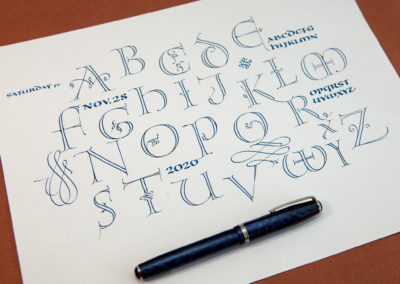 A B C D E
ABCDEFG
HIJKLMN
SATURDAY
NOV. 28
F G H I J K L M
OPQRST
UVWXYZ
N O P Q R
2020
S T U V W X Y Z